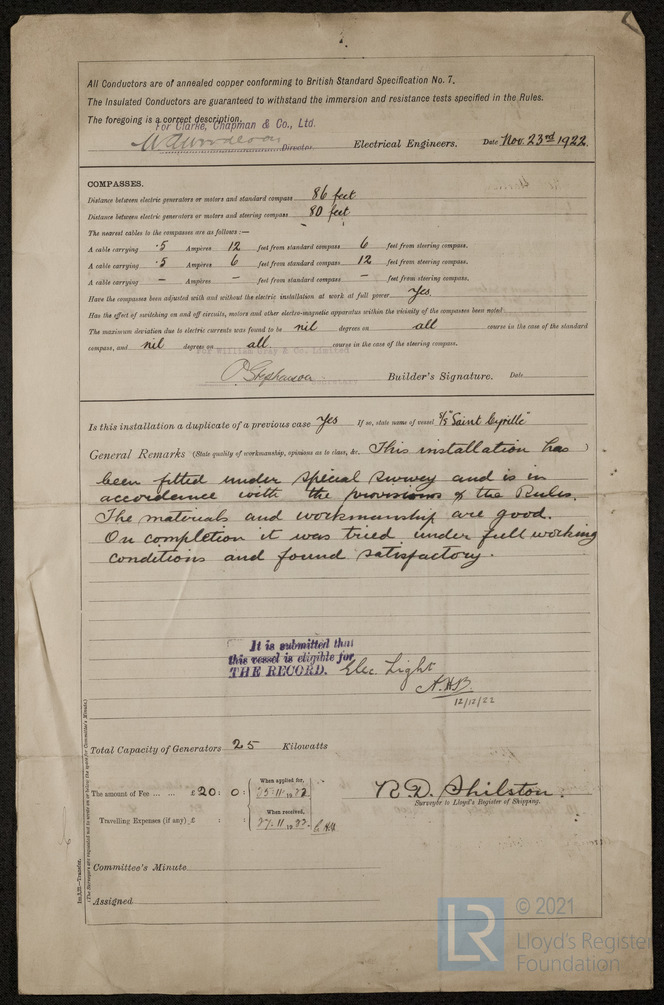 All Conductors are of annealed copper conforming to British Standard Specification No. 7.
The Insulated Conductors are guaranteed to withstand the immersion and resistance tests specified in the Rules.
The foregoing is a correct description.
For Clarke, Chapman & Co., Ltd.
Director. Electrical Engineers. Date Nov. 23rd 1922.
COMPASSES.
Distance between electric generators or motors and standard compass 86 feet
Distance between electric generators or motors and steering compass 80 feet
The nearest cables to the compasses are as follows:—
A cable carrying ·5 Ampères 12 feet from standard compass 6 feet from steering compass.
A cable carrying ·5 Ampères 6 feet from standard compass 12 feet from steering compass.
A cable carrying – Ampères – feet from standard compass – feet from steering compass.
Have the compasses been adjusted with and without the electric installation at work at full power Yes.
Has the effect of switching on and off circuits, motors and other electro-magnetic apparatus within the vicinity of the compasses been noted
The maximum deviation due to electric currents was found to be nil degrees on all course in the case of the standard
compass, and nil degrees on all course in the case of the steering compass.
For William Gray & Co. Limited
Builder's Signature. Date
Is this installation a duplicate of a previous case Yes If so, state name of vessel S/S "Saint Cyrille"
General Remarks (State quality of workmanship, opinions as to class, &c. This installation has )
been fitted under special survey and is in
accordance with the provisions of the Rules.
The materials and workmanship are good.
On completion it was tried under full working
conditions and found satisfactory.
It is submitted that
this vessel is eligible for
THE RECORD. Elec. Light
12/12/22
Total Capacity of Generators 25 Kilowatts
The amount of Fee ... ... £ 20 : 0 : When applied for, 25.11.1922
R.D. Shilston.
Surveyor to Lloyd's Register of Shipping.
Travelling Expenses (if any) £ : : When received,
Committee's Minute
Assigned
(The Surveyors are requested not to write on or below the space for Committee's Minute.)
© 2021
LR
Lloyd's Register
Foundation